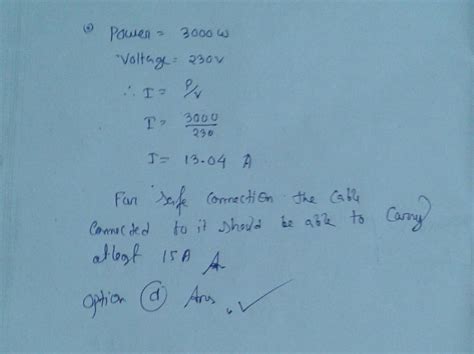 Power = 3000 W
Voltage = 230 V
∴ I = P/V
I = 3000/230
I = 13.04 A
For safe connection the cable
connected to it should be able to carry
atleast 15 A
option (d) Ans. ✓